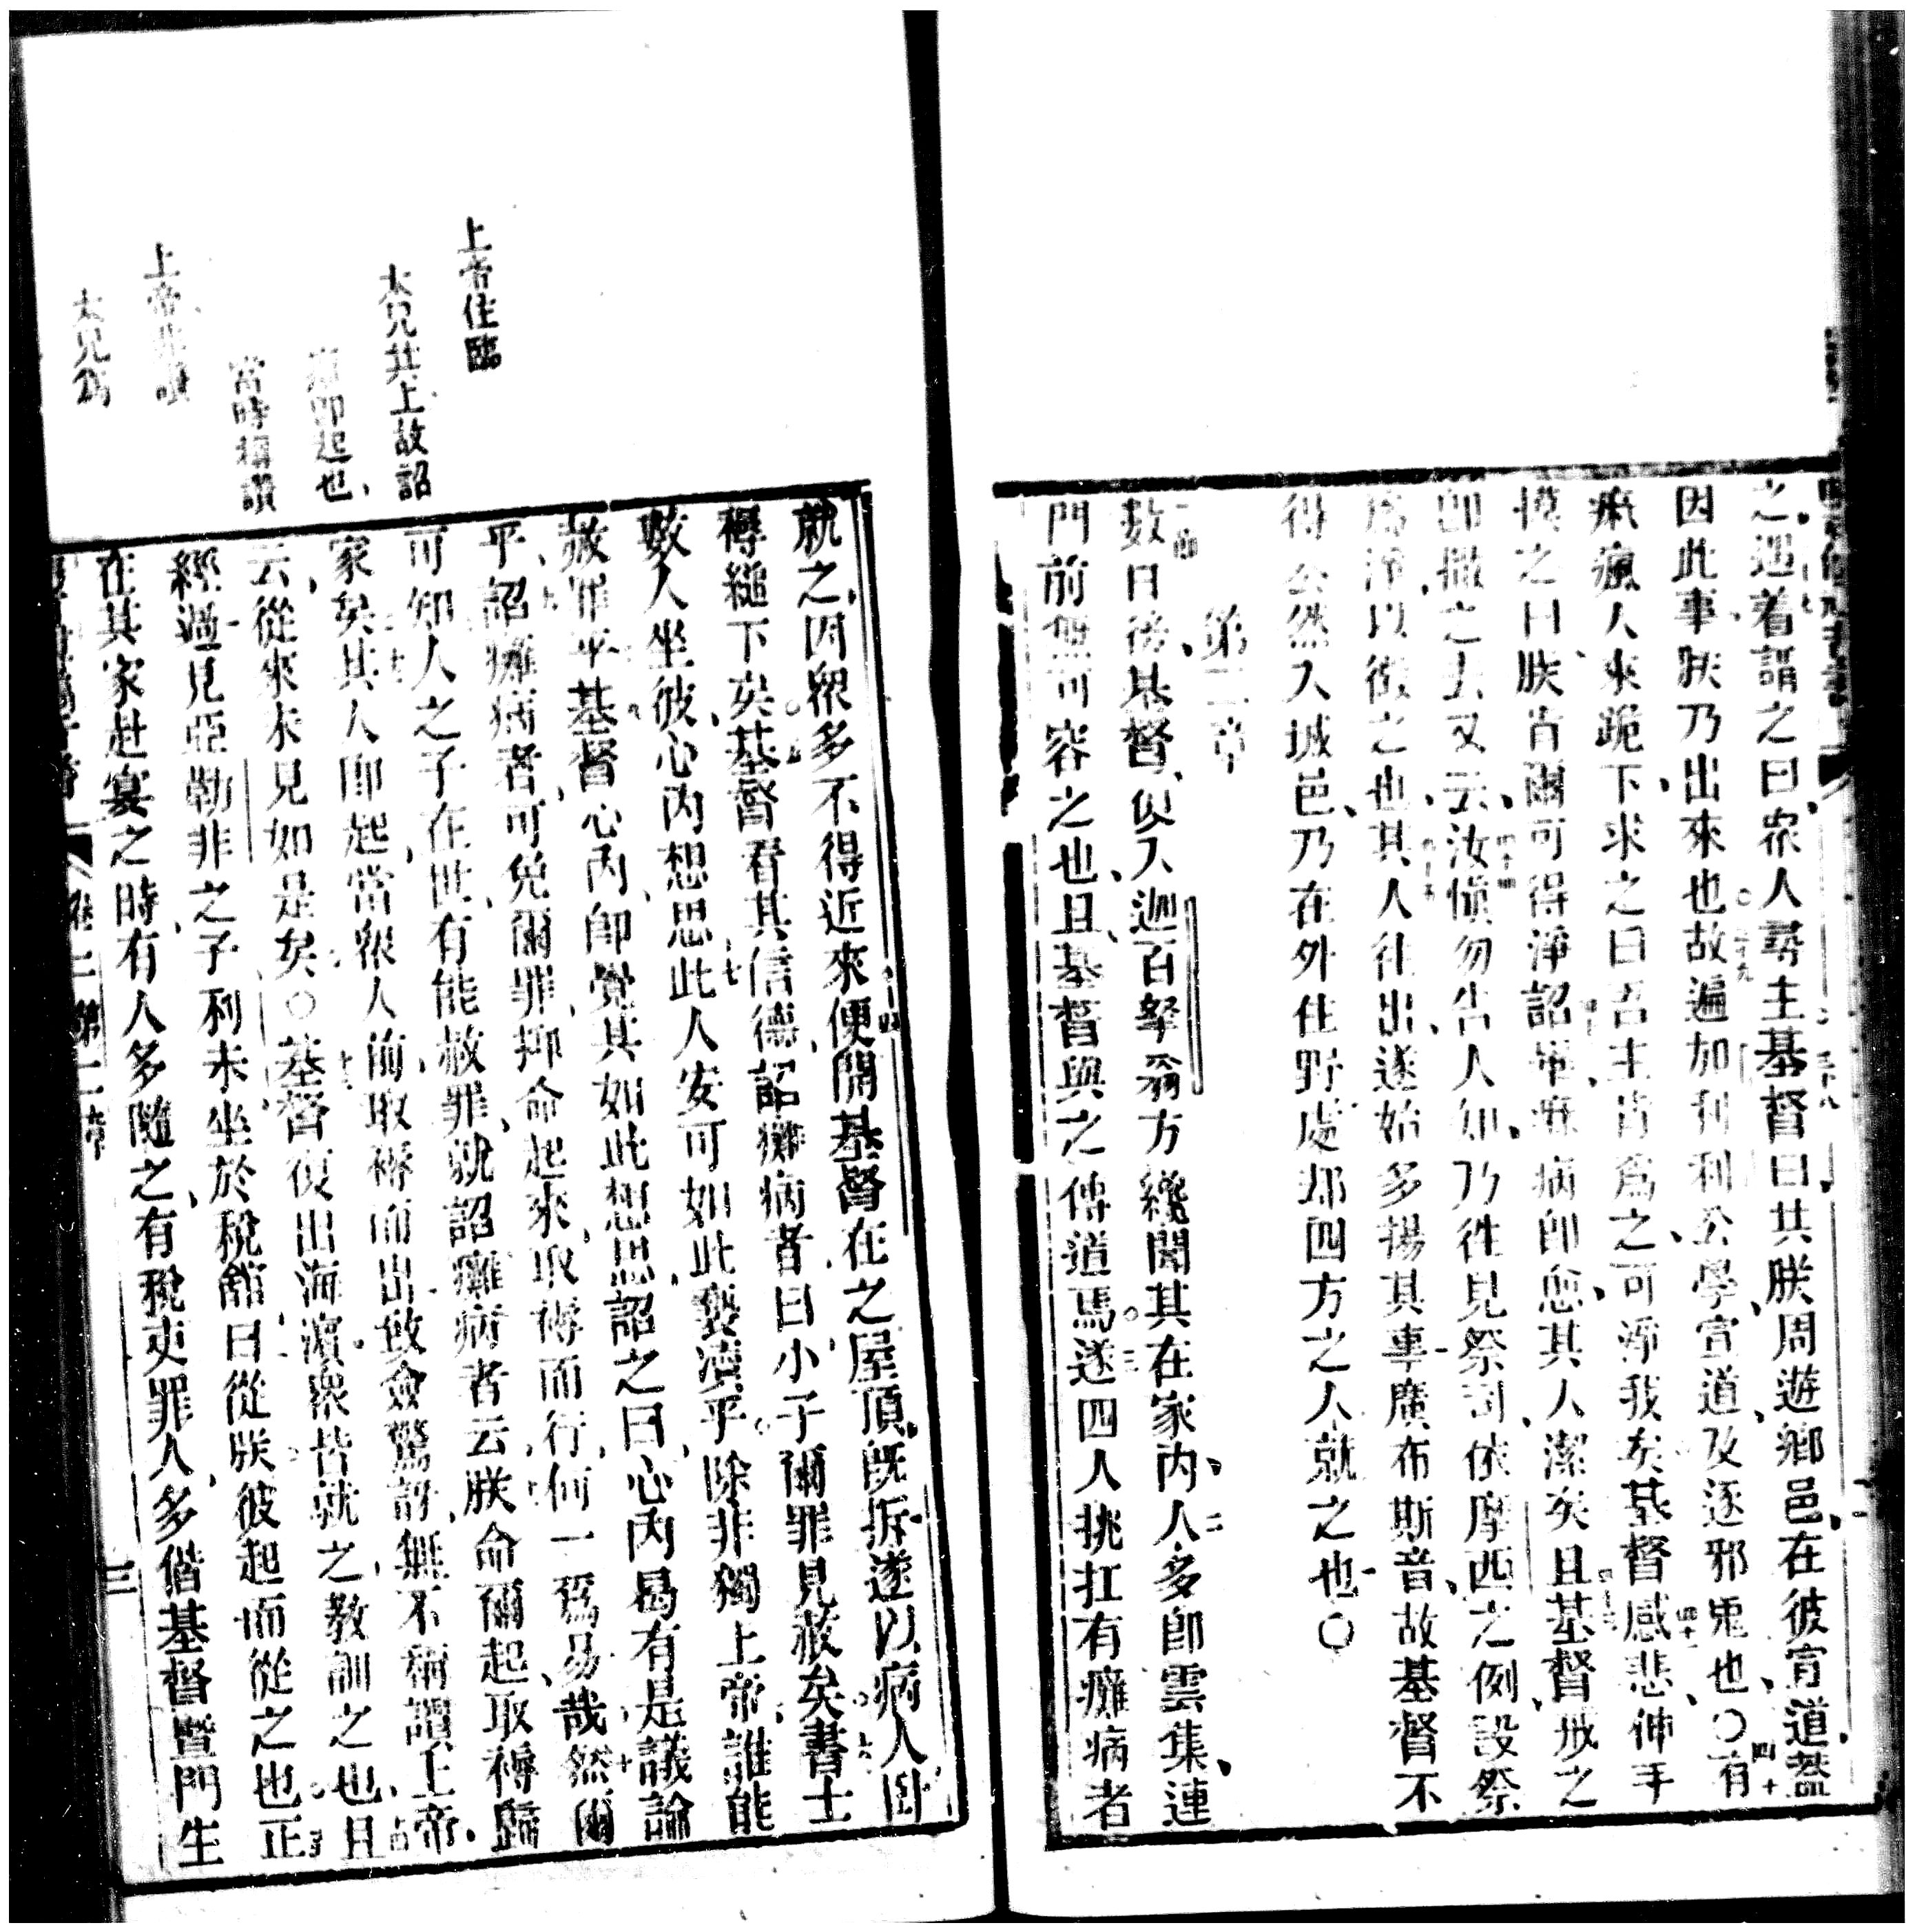 之遇着謂之曰衆人尋主基督曰共朕周遊鄉邑在彼宣道葢
因此事朕乃出來也故遍加利利公學宣道及逐邪鬼也〇有
痳瘋人來跪下求之曰吾主肯爲之可淨我矣基督感悲伸手
摸之曰朕肯爾可得淨詔畢痳病卽愈其人潔矣且基督戒之
卽撤之去又云汝愼勿吿人知乃徃見祭司依摩西之例設祭
爲淨以徵之也其人徃出遂始多揚其事廣布斯音故基督不
得公然入城邑乃在外住野處却四方之人就之也〇
第二章
數日後基督似入迦百拏翁方纔聞其在家內人多卽雲集連
門前無可容之也且基督與之傳道焉遂四人挑扛有癱病者
上帝住臨
太兄其上故詔
卽起也
當時稱讚
上帝非讚
太兄爲
就之因衆多不得近來便開基督在之屋頂旣拆遂以病人臥
褥縋下矣基督看其信德詔癱病者曰小子爾罪見赦矣書士
數人坐彼心內想思此人安可如此褻瀆乎除非獨上帝誰能
赦罪乎基督心內卽覺其如此想思詔之曰心內曷有是議論
乎詔癱病者可免爾罪抑命起來取褥而行何一爲易哉然爾
可知人之子在世有能赦罪就詔癱病者云朕命爾起取褥歸
家矣其人卽起當衆人前取褥而出致僉驚訝無不稱讚上帝
云從來未見如是矣〇基督復出海濱衆皆就之敎訓之也且
經過見亞勒非之子利未坐於稅舘曰從朕彼起而從之也正
在其家赴宴之時有人多隨之有稅吏罪人多偕基督曁門生
第二章
三